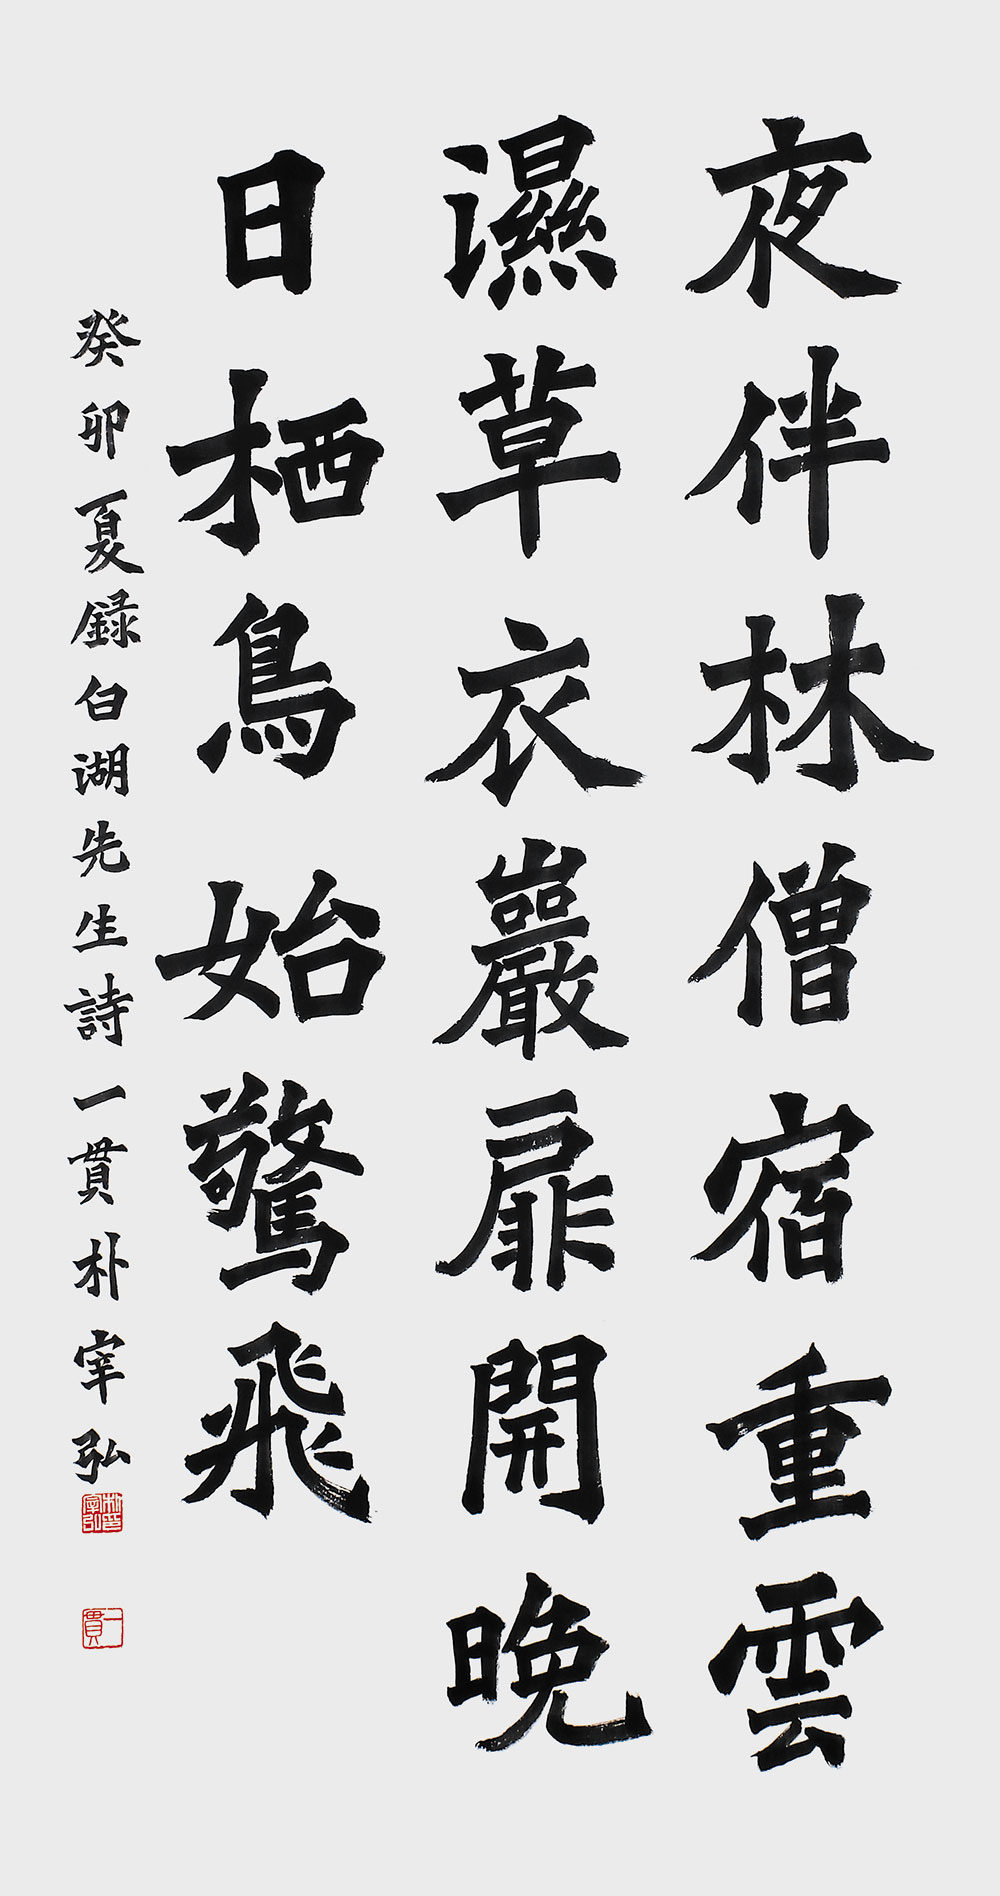 夜伴林僧宿重雲
濕草衣巖扉開晚
日栖鳥始驚飛
癸卯夏錄白湖先生詩一貫朴宰弘
朴宰弘印
一貫